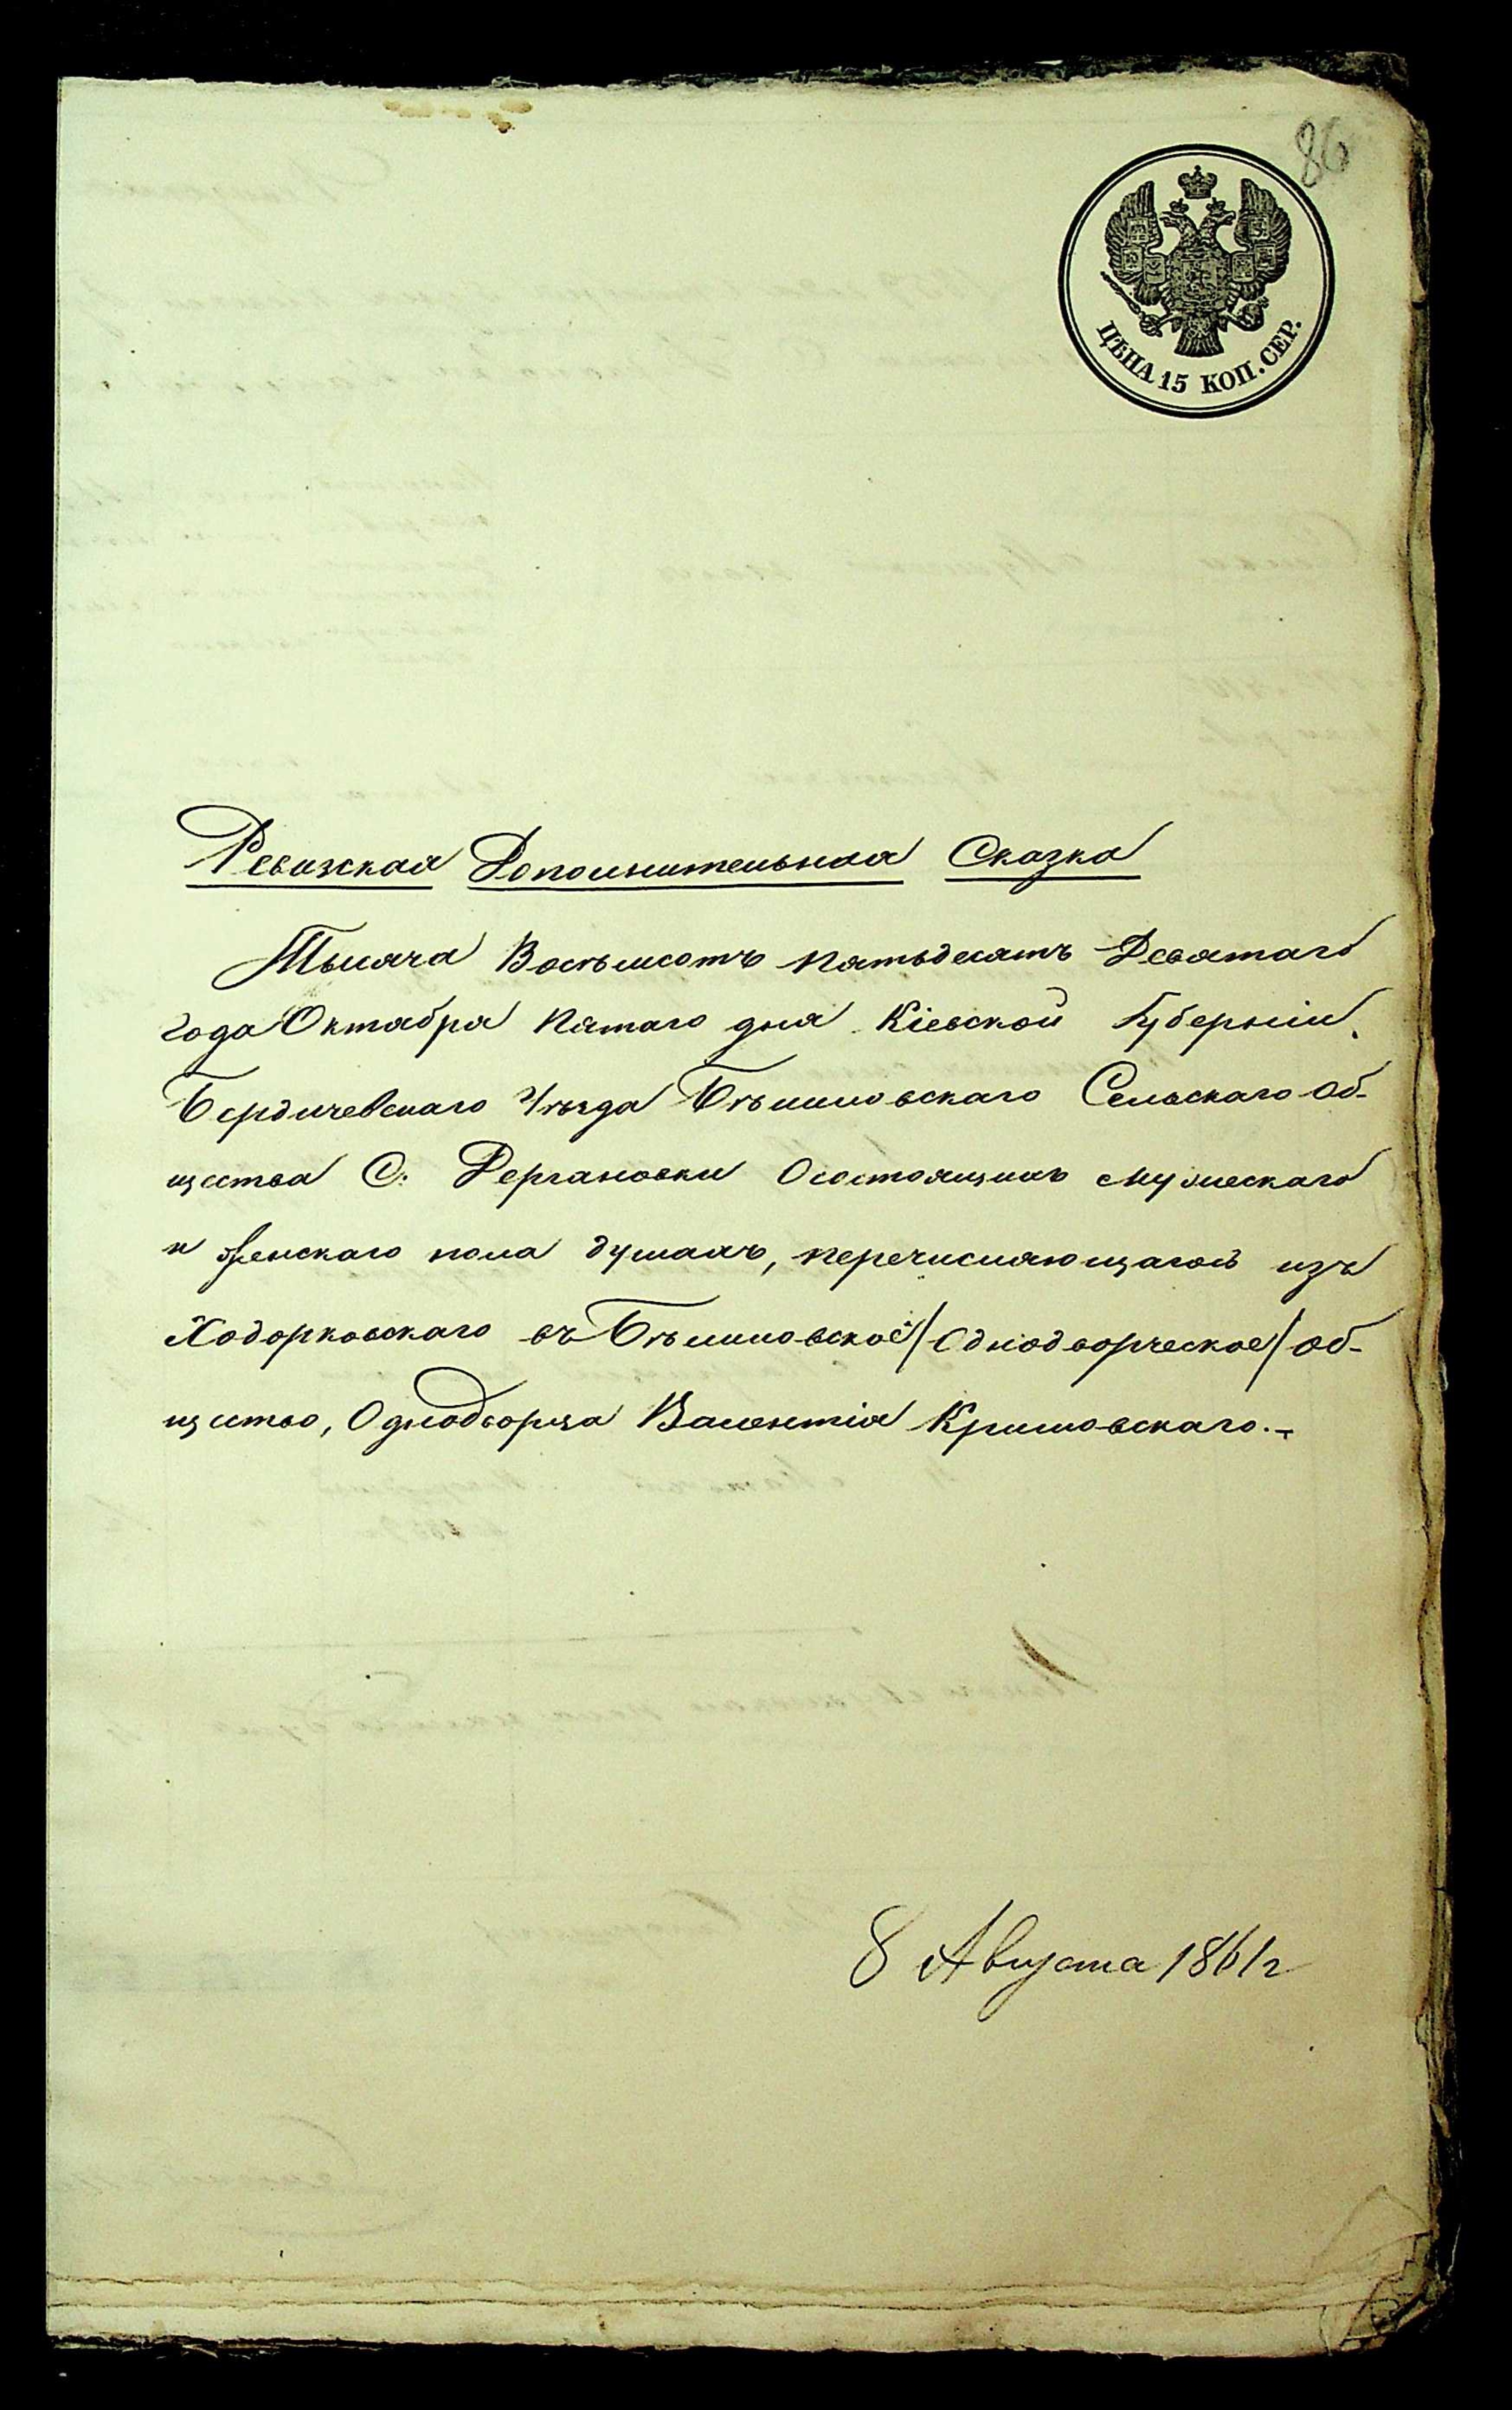 86
ЦѢНА 15 КОП. СЕР.
Ревизская Дополнительная Сказка
Тысяча Восѣмсотъ пятьдесятъ Девятаго
года Октября Пятаго дня Кіевской Губерніи,
Бердичевскаго Уѣзда Бѣлиловскаго Сельскаго Об-
щества С. Дергановки О состоящихъ мужескаго
и женскаго пола душахъ, перечисляющагося изъ
Ходорковскаго въ Бѣлиловское /Однодворческое/ об-
щество, Однодворца Валентія Кришовскаго.
8 Августа 1861 г